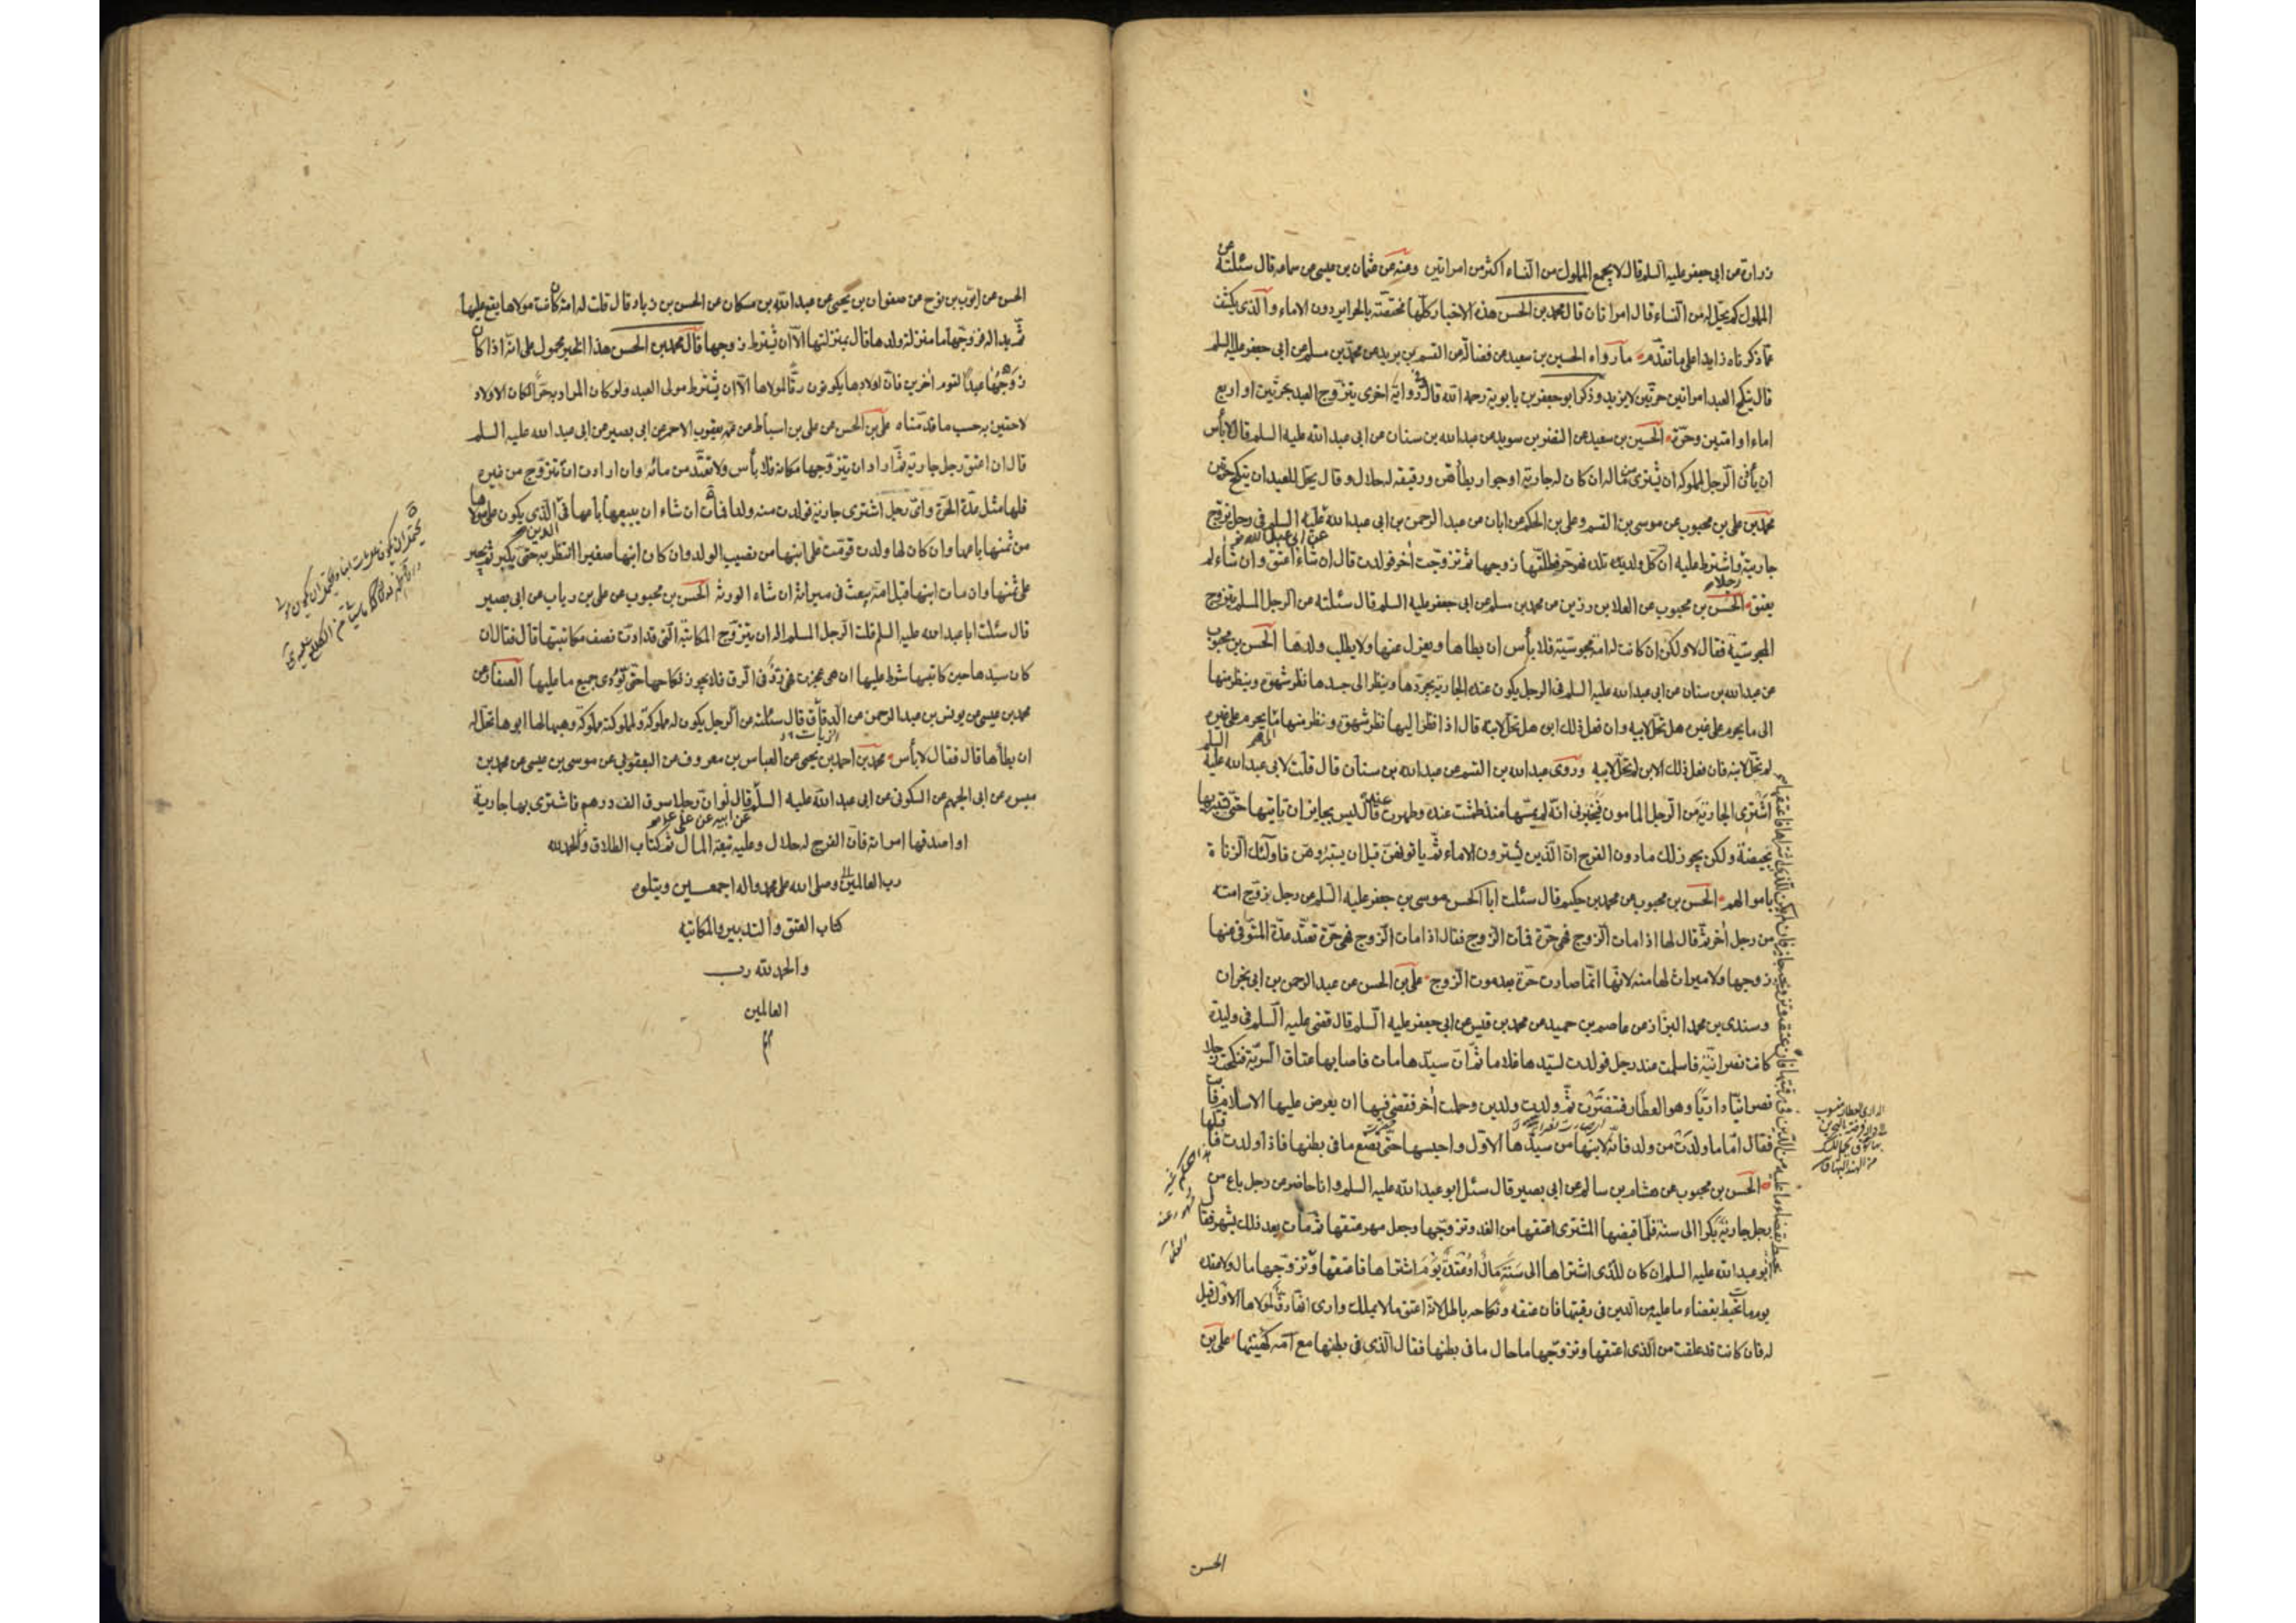 زرارة عن ابى جعفر عليه السلم قال لا يجمع المملوك من النساء اكثر من امراتين وعنه عن عثمان بن عيسى عن سماعه قال سئلته عن
المملوك كم يحل له من النساء قال امراتان قال محمد بن الحسن هذه الاخبار كلها مختصة بالحراير دون الاماء والذى يكشف
عما ذكرناه زايدا على ما تقدم ما رواه الحسين بن سعيد عن فضالة عن القسم بن بريد عن محمد بن مسلم عن ابى جعفر عليه السلم
قال ينكح العبد امراتين حرتين لا يزيد وذكر ابو جعفر بن بابويه رحمه الله قال وفى رواية اخرى يتزوج العبد بحرتين او اربع
اماء او امتين وحرة الحسين بن سعيد عن النضر بن سويد عن عبد الله بن سنان عن ابى عبد الله عليه السلم قال لا بأس
ان يأذن الرجل لمملوكه ان يشترى من ماله ان كان له جارية او جوار يطأهن ورقيقه له حلال وقال يحل للعبد ان ينكح حرتين
محمد بن على بن محبوب عن موسى بن القسم وعلى بن الحكم عن ابان عن عبد الرحمن بن ابى عبد الله عن ابى عبد الله عليه السلم فى رجل تزوج
جارية واشترط عليه ان كل ولد تلده فهو حر فطلقها زوجها ثم تزوجت آخر فولدت قال ان شاء اعتق وان شاء لم
يعتق الحسن بن محبوب عن العلا بن رزين عن محمد بن مسلم عن ابى جعفر عليه السلم قال سئلته عن الرجل المسلم يتزوج
المجوسية فقال لا ولكن ان كانت له امة مجوسية فلا بأس ان يطاها ويعزل عنها ولا يطلب ولدها الحسن بن محبوب
عن عبد الله بن سنان عن ابى عبد الله عليه السلم فى الرجل يكون عنده الجارية يجردها وينظر الى جسدها نظر شهوة وينظر منها
الى ما يحرم على غيره هل تحل لابيه وان فعل ذلك ابوه هل تحل لابنه قال اذا نظر اليها نظر شهوة ونظر منها ما يحرم على غيره
لم تحل لابنه فان فعل ذلك الابن لم تحل لابيه وروى عبد الله بن القسم عن عبد الله بن سنان قال قلت لابى عبد الله عليه السلم
اشترى الجارية من الرجل المامون فيخبرنى انه لم يمسها منذ طمثت عنده وطهرت قال ليس بجايز ان تاتيها حتى تستبريها
بحيضة ولكن يجوز ذلك ما دون الفرج ان الذين يشترون الاماء ثم ياتونهن قبل ان يستبروهن فاولئك الزناة
باموالهم الحسن بن محبوب عن محمد بن حكيم قال سئلت ابا الحسن موسى بن جعفر عليه السلم عن رجل زوج امته
من رجل آخر ثم قال لها اذا مات الزوج فهى حرة فمات الزوج فقال اذا مات الزوج فهى حرة تعتد عدة المتوفى عنها
زوجها ولا ميراث لها منه لانها انما صارت حرة بعد موت الزوج على بن الحسن عن عبد الرحمن بن ابى نجران
وسندى بن محمد البزاز عن عاصم بن حميد عن محمد بن قيس عن ابى جعفر عليه السلم قال قضى عليه السلم فى وليدة
كانت نصرانية فاسلمت عند رجل فولدت لسيدها غلاما ثم ان سيدها مات فاصابها عتاق السرية فنكحت رجلا
نصرانيا داريا وهو العطار فتنصرت ثم ولدت ولدين وحملت آخر فقضى فيها ان يعرض عليها الاسلام فابت
فقال اما ما ولدت من ولد فانه لابنها من سيدها الاول واحبسها حتى تضع ما فى بطنها فاذا ولدت فاقتلها
الحسن بن محبوب عن هشام بن سالم عن ابى بصير قال سئل ابو عبد الله عليه السلم وانا حاضر عن رجل باع من
رجل جارية بكرا الى سنة فلما قبضها المشترى اعتقها من الغد وتزوجها وجعل مهرها عتقها ثم مات بعد ذلك بشهر فقال
ابو عبد الله عليه السلم ان كان للذى اشتراها الى سنة مال او عقدة يوم اشتراها فاعتقها وتزوجها مال ولا عقدة
يوم مات تحيط بقضاء ما عليه من الدين فى رقبتها فان عتقه ونكاحه باطل لانه اعتق ما لا يملك وارى انها رق لمولاها الاول قيل
له فان كانت قد علقت من الذى اعتقها وتزوجها ما حال ما فى بطنها فقال الذى فى بطنها مع امه كهيئتها على بن
الحسن
الحسن عن ايوب بن نوح عن صفوان بن يحيى عن عبد الله بن مسكان عن الحسن بن زياد قال قلت له امة كان مولاها يقع عليها
ثم بدا له فزوجها ما منزلة ولدها قال بمنزلتها الا ان يشترط زوجها قال محمد بن الحسن هذا الخبر محمول على انه اذا كان
زوجها عبدا لقوم آخرين فان اولادها يكونون رقا لمولاها الا ان يشترط مولى العبد ولو كان المراد به حرا لكان الاولاد
لاحقين به حسب ما قدمناه على بن الحسن عن على بن اسباط عن عمه يعقوب الاحمر عن ابى بصير عن ابى عبد الله عليه السلم
قال ان اعتق رجل جارية ثم اراد ان يتزوجها مكانه فلا بأس ولا تعتد من مائه وان ارادت ان تتزوج من غيره
فلها مثل عدة الحرة واى رجل اشترى جارية فولدت منه ولدا فمات ان شاء ان يبيعها باعها فى الدين الذى يكون على مولاها
من ثمنها باعها وان كان لها ولد قومت على ابنها من نصيب الولد وان كان ابنها صغيرا انتظر به حتى يكبر ثم يجبر
على ثمنها وان مات ابنها قبل امه بيعت فى ميراثه ان شاء الورثة الحسن بن محبوب عن على بن رياب عن ابى بصير
قال سئلت ابا عبد الله عليه السلم قلت الرجل المسلم اله ان يتزوج المكاتبة التى قد ادت نصف مكاتبتها قال فقال ان
كان سيدها حين كاتبها شرط عليها ان هى عجزت فهى رد فى الرق فلا يجوز نكاحها حتى تؤدى جميع ما عليها الصفار عن
محمد بن عيسى عن يونس بن عبد الرحمن عن الدقاق قال سئلته عن الرجل يكون له مملوكة ولمملوكته مملوكة وهبها لها ابوها تحل له
ان يطأها قال فقال لا بأس محمد بن احمد بن يحيى عن العباس بن معروف عن اليعقوبى عن موسى بن عيسى عن محمد بن
ميسر عن ابى الجهم عن السكونى عن ابى عبد الله عليه السلم قال لو ان رجلا سرق الف درهم فاشترى بها جارية
او اصدقها امراته فان الفرج له حلال وعليه تبعة المال تم كتاب الطلاق والحمد لله
رب العالمين وصلى الله على محمد واله اجمعين ويتلوه
كتاب العتق والتدبير والمكاتبه
والحمد لله رب
العالمين
م